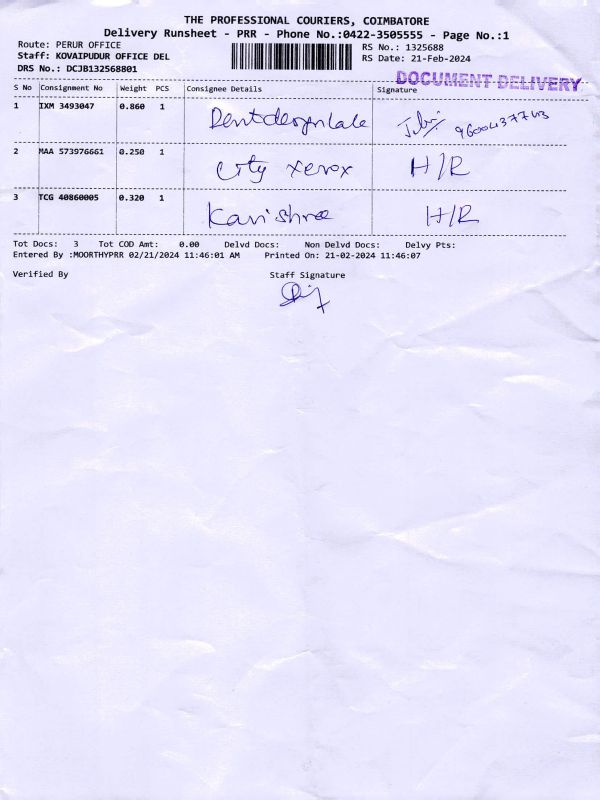 THE PROFESSIONAL COURIERS, COIMBATORE
Delivery Runsheet - PRR - Phone No.:0422-3505555 - Page No.:1
Route: PERUR OFFICE
RS No.: 1325688
Staff: KOVAIPUDUR OFFICE DEL
RS Date: 21-Feb-2024
DRS No.: DCJB132568801
DOCUMENT DELIVERY
S No Consignment No Weight PCS Consignee Details Signature
1 IXM 3493047 0.860 1
2 MAA 573976661 0.250 1 City xerox H/R
3 TCG 40860005 0.320 1 Kavishree H/R
Tot Docs: 3 Tot COD Amt: 0.00 Delvd Docs: Non Delvd Docs: Delvy Pts:
Entered By :MOORTHYPRR 02/21/2024 11:46:01 AM Printed On: 21-02-2024 11:46:07
Verified By Staff Signature